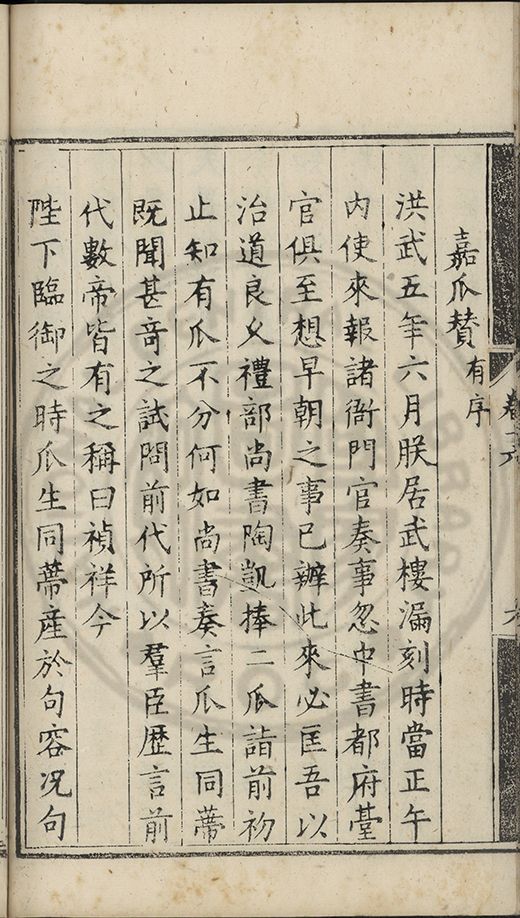 嘉瓜賛有序
洪武五年六月朕居武樓漏刻時當正午
内使來報諸衙門官奏事忽中書都府臺
官俱至想早朝之事已辦此來必匡吾以
治道良乆禮部尚書陶凱捧二瓜詣前初
止知有瓜不分何如尚書奏言瓜生同蔕
既聞甚竒之試問前代所以羣臣歴言前
代數帝皆有之稱曰禎祥今
陛下臨御之時瓜生同蔕産於句容况句